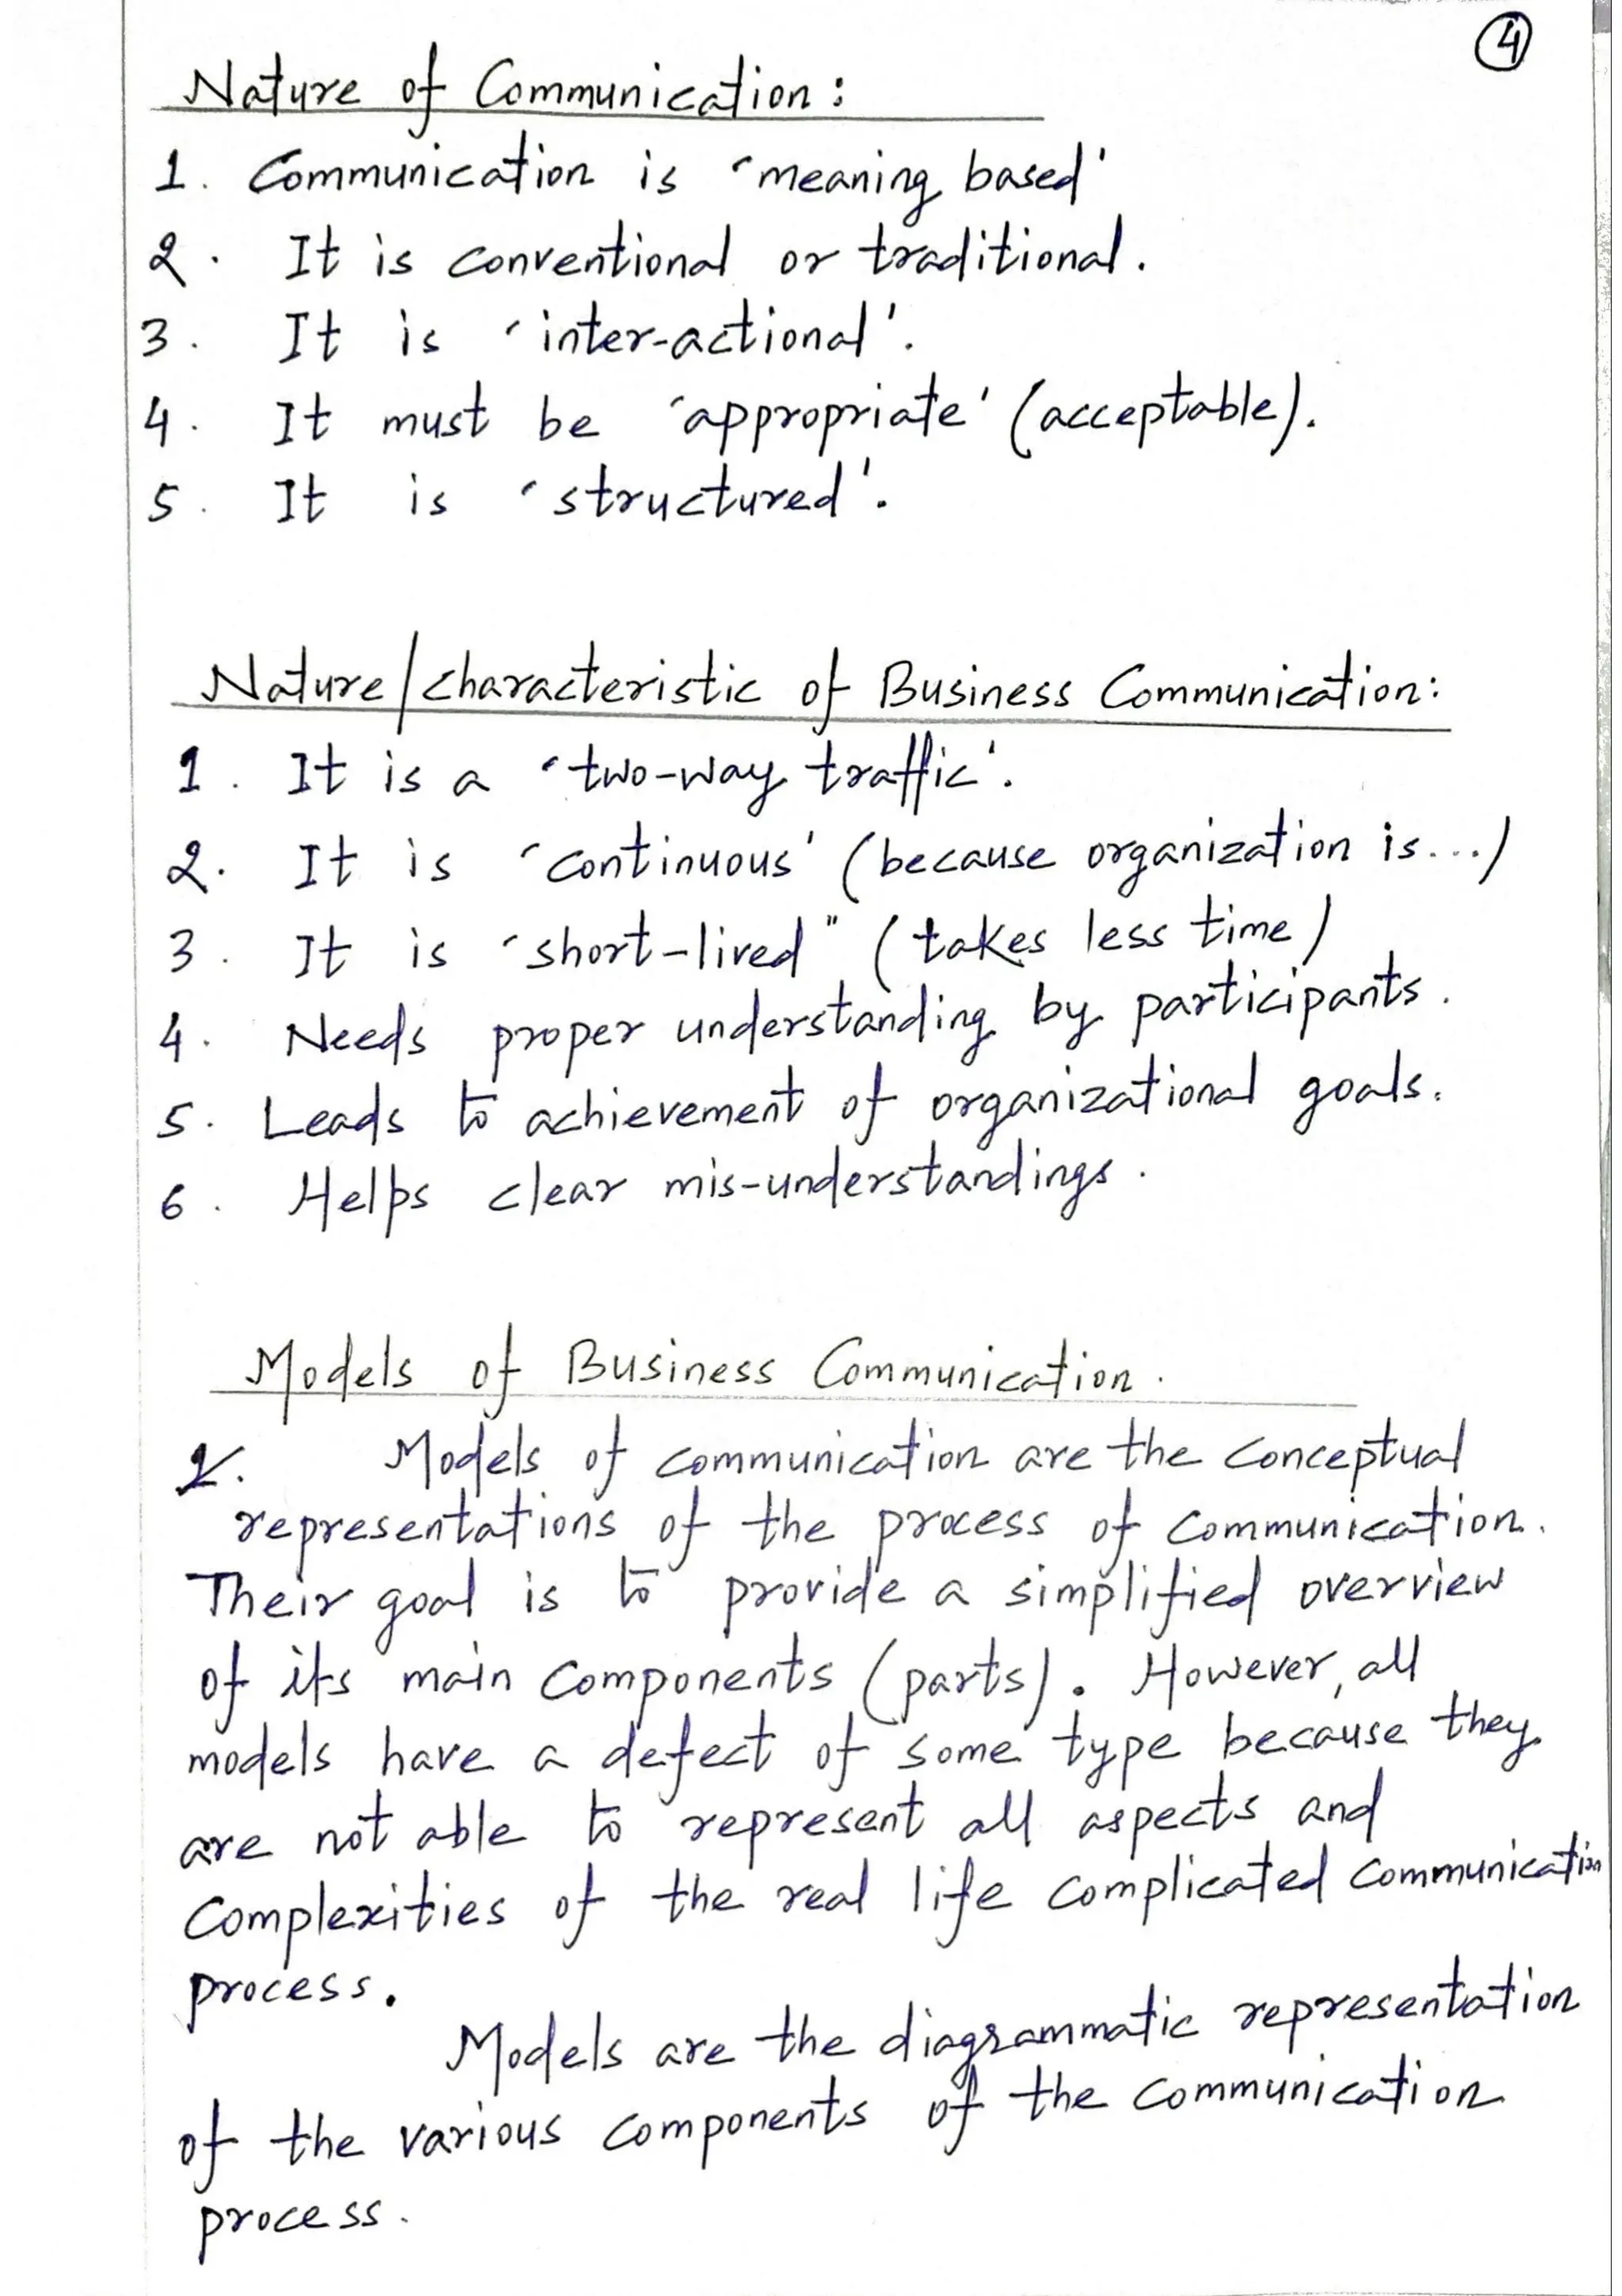 4
Nature of Communication:
1. Communication is 'meaning based'
2. It is conventional or traditional.
3. It is 'inter-actional'.
4. It must be 'appropriate' (acceptable).
5. It is 'structured'.
Nature/characteristic of Business Communication:
1. It is a 'two-way traffic'.
2. It is 'continuous' (because organization is...)
3. It is 'short-lived" (takes less time)
4. Needs proper understanding by participants.
5. Leads to achievement of organizational goals.
6. Helps clear mis-understandings.
Models of Business Communication.
1. Models of communication are the conceptual
representations of the process of communication.
Their goal is to provide a simplified overview
of its main components (parts). However, all
models have a defect of some type because they
are not able to represent all aspects and
complexities of the real life complicated communication
process.
Models are the diagrammatic representation
of the various components of the communication
process.